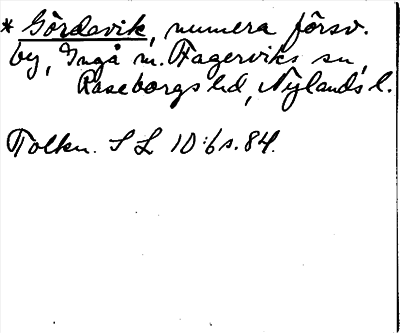 * Gördavik, numera försv.
by, Ingå m. Fagerviks sn,
Raseborgs hd, Nylands l.
Tolkn. SL 10:6 s. 84.